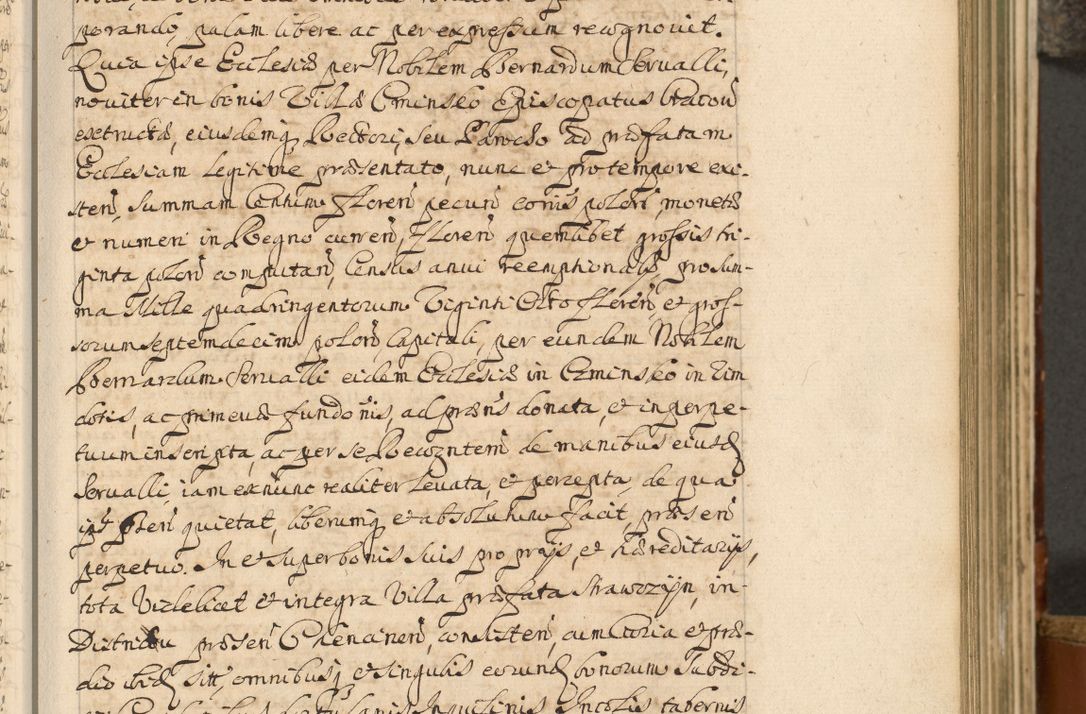 porando, palam libere ac per expressum recognovit.
Quia ipse Ecclesiæ per Nobilem Bernardum Servalli,
noviter in bonis Villæ Cminsko Episcopatus Cracoū
exstructæ, eiusdemq Rectori, seu Parocho ad præfatam
Ecclesiam legitime præsentato, nunc et pro tempore exi-
steñ, summam Centum Floreñ pecuñ coñis poloñ, monetæ
et numeri in Regno curreñ, Floreñ quemlibet grossis tri-
ginta poloñ computañ, Census anui reemptionalis, pro sum-
ma Mille quadringentorum Viginti Octo Floreñ, et gros-
sorum septemdecim poloñ, Capitali, per eundem Nobilem
Bernardum Servalli eidem Ecclesiæ in Cminsko in vim
dotis, ac primevæ fundoñis, ad præns donata, et in perpe-
tuum inscripta, ac per se Recognteñ de manibus eiusd
Servalli, iam ex nunc realiter levata, et percepta, de qua
quietat, liberumq et absolutum facit, præseñ
perpetuo. In et super bonis suis proprijs, et hæreditarijs,
tota videlicet et integra Villa præfata Strawczyn, in
Districtu præseñ Chencineñ, consisteñ, cum Curia et præ-
dio ibid sitt, omnibusq et singulis eorund bonorum subdi-
Inquilinis Incolis tabernis